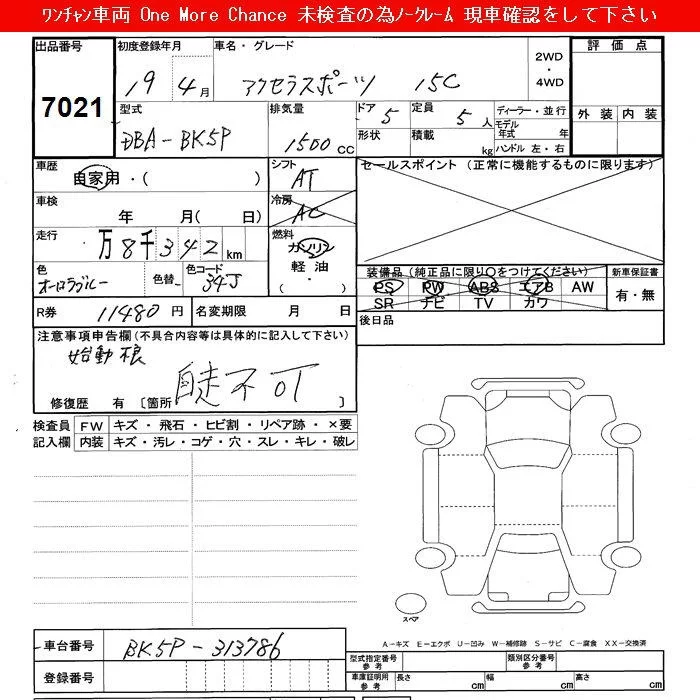 ワンチャン車両 One More Chance 未検査の為ノークレーム 現車確認をして下さい
出品番号 初度登録年月 車名・グレード 評価点
7021 19年 4月 アクセラスポーツ 15C 2WD・4WD
型式 排気量 ドア 定員 ディーラー・並行 外装 内装
DBA-BK5P 1500cc 5 5人 モデル年式 年
形状 積載 kg ハンドル 左・右
車歴 自家用・( ) シフト AT セールスポイント (正常に機能するものに限ります)
車検 年 月( 日) 冷房 AC
走行 万8千342km 燃料 ガソリン
軽油・( )
色 オーロラブルー 色替 色コード 34J
装備品 (純正品に限り〇をつけてください) 新車保証書
PS PW ABS エアB AW 有・無
SR ナビ TV カワ
R券 11480円 名変期限 月 日 後日品
注意事項申告欄 (不具合内容等は具体的に記入して下さい)
自走不可
修復歴 有 [箇所 ]
検査員記入欄 FW キズ・飛石・ヒビ割・リペア跡・×要
内装 キズ・汚レ・コゲ・穴・スレ・キレ・破レ
スペア
A-キズ E-エクボ U-凹み W-補修跡 S-サビ C-腐食 XX-交換済
車台番号 BK5P-313786
型式指定番号 参考 類別区分番号 参考
登録番号 車庫証明用 参考 長さ cm 幅 cm 高さ cm